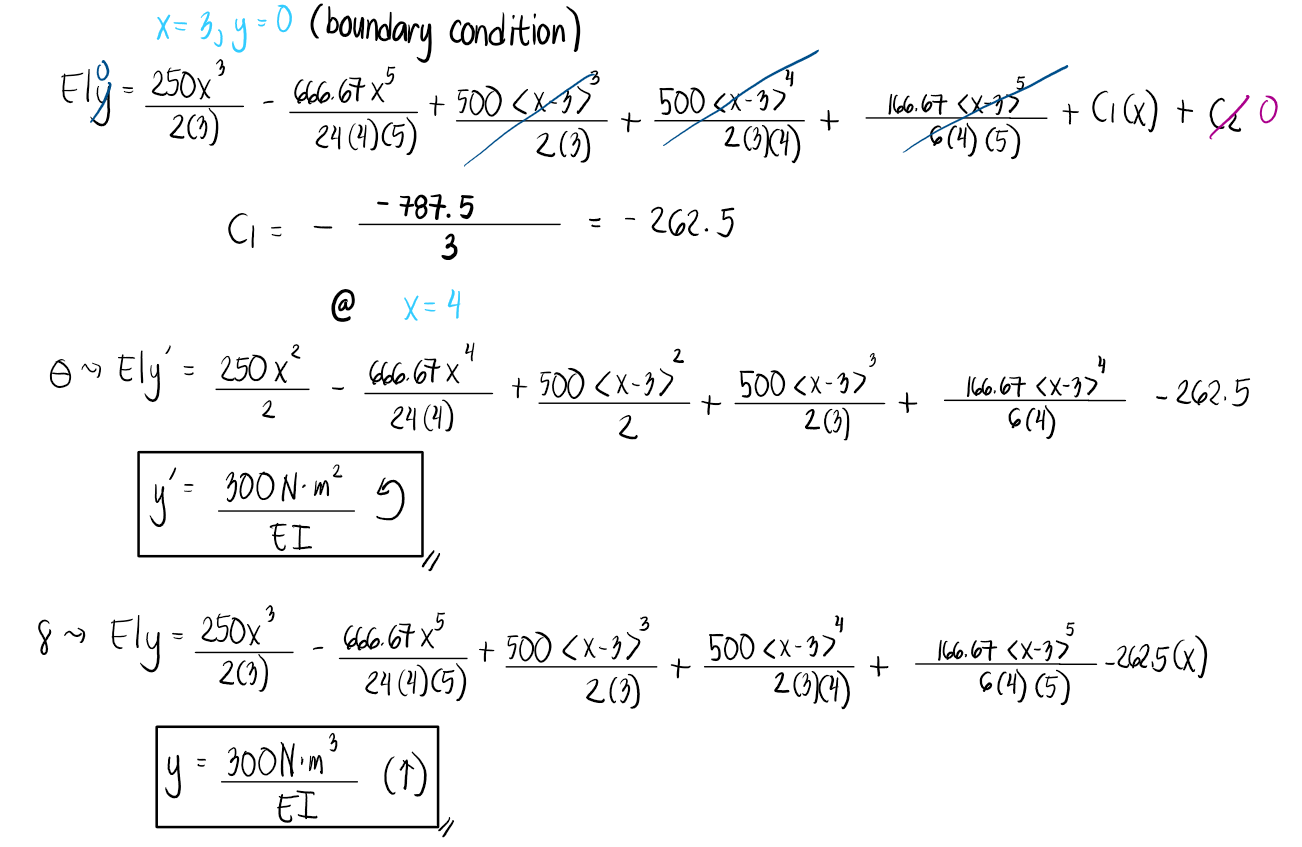 x = 3, y = 0 (boundary condition)
EIy⁰ = 250x³/2(3) - 666.67x⁵/24(4)(5) + 500<x-3>³/2(3) + 500<x-3>⁴/2(3)(4) + 166.67<x-3>⁵/6(4)(5) + C₁(x) + C₂ 0
C₁ = - -787.5/3 = -262.5
@ x = 4
θ ⤳ EIy' = 250x²/2 - 666.67x⁴/24(4) + 500<x-3>²/2 + 500<x-3>³/2(3) + 166.67<x-3>⁴/6(4) - 262.5
y' = 300N·m²/EI ↺
δ ⤳ EIy = 250x³/2(3) - 666.67x⁵/24(4)(5) + 500<x-3>³/2(3) + 500<x-3>⁴/2(3)(4) + 166.67<x-3>⁵/6(4)(5) - 262.5(x)
y = 300N·m³/EI (↑)